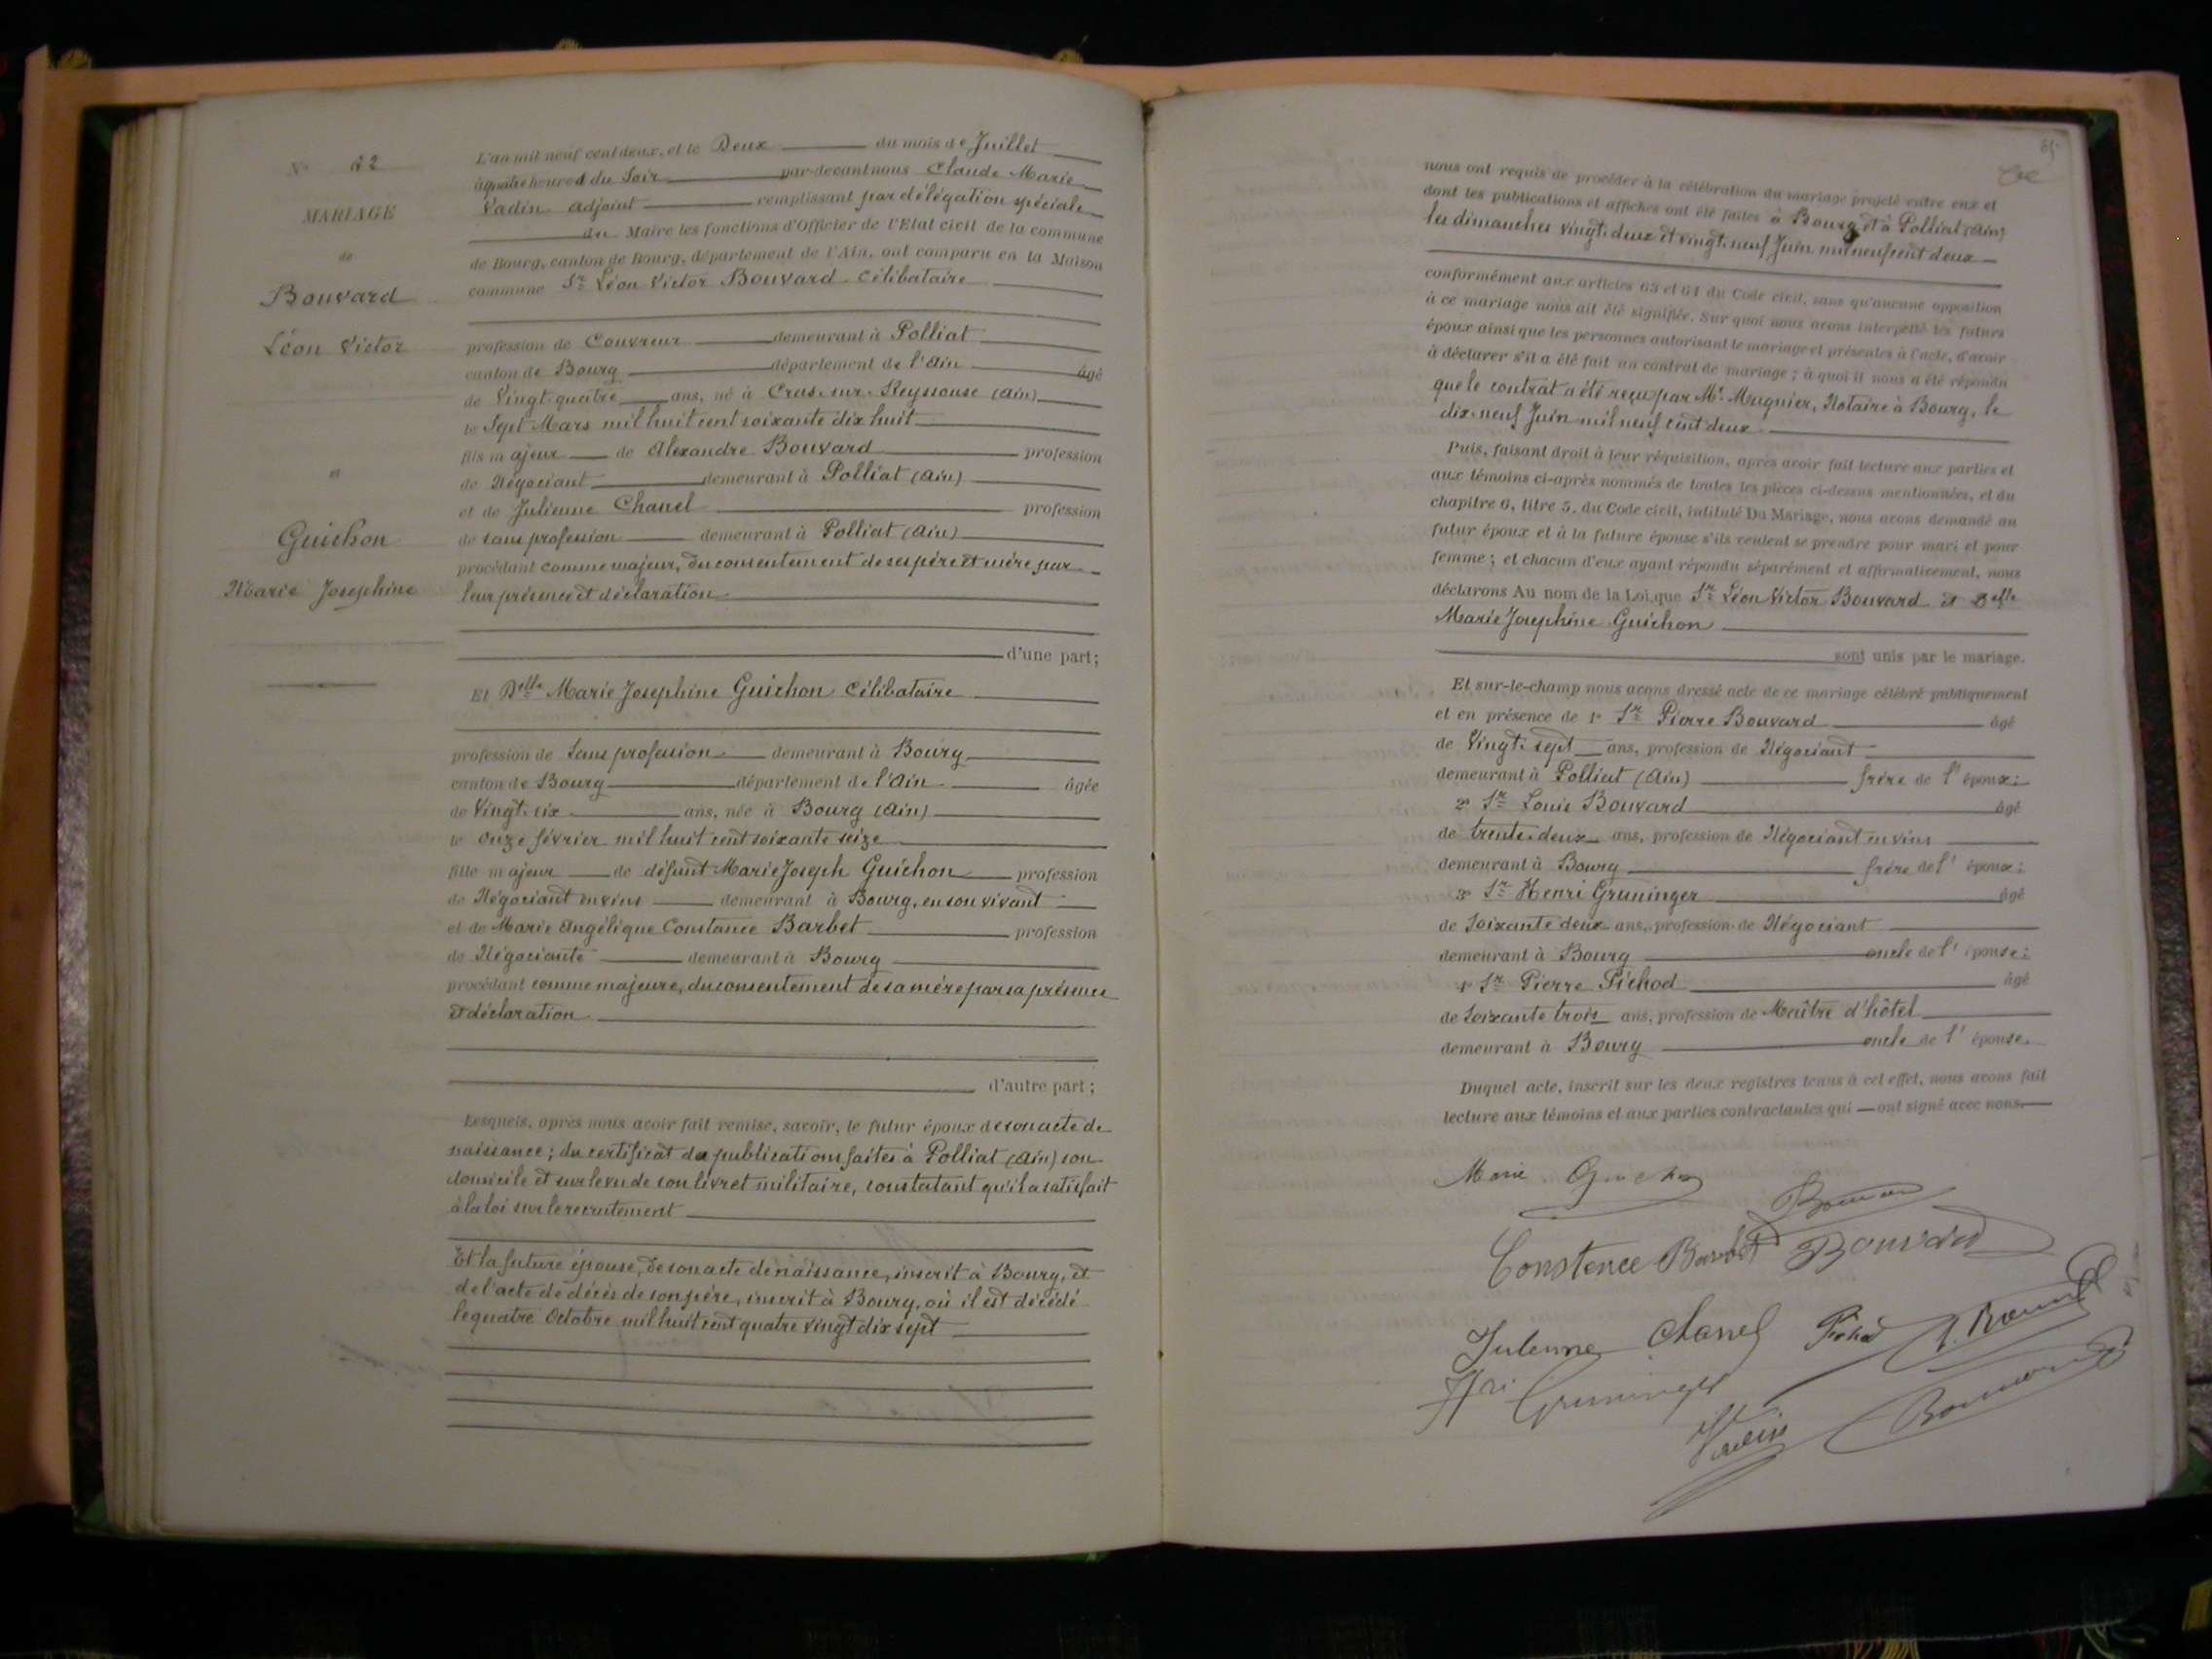 N° 62
MARIAGE
de
Bouvard
Léon Victor
et
Guichon
Marie Josephine
L'an mil neuf cent deux, et le Deux du mois de Juillet
à quatre heures du Soir par-devant nous Claude Marie
Vadin Adjoint remplissant par délégation spéciale
du Maire les fonctions d'Officier de l'Etat civil de la commune
de Bourg, canton de Bourg, département de l'Ain, ont comparu en la Maison
commune Sr Léon Victor Bouvard Célibataire
profession de Couvreur demeurant à Polliat
canton de Bourg département de l'Ain âgé
de Vingt-quatre ans, né à Cras-sur-Reyssouse (Ain)
le Sept Mars mil huit cent soixante dix huit
fils majeur de Alexandre Bouvard profession
de Négociant demeurant à Polliat (Ain)
et de Julienne Chanel profession
de sans profession demeurant à Polliat (Ain)
procédant comme majeur, du consentement de ses père et mère par
leur présence et déclaration
d'une part;
Et Delle Marie Josephine Guichon Célibataire
profession de Sans profession demeurant à Bourg
canton de Bourg département de l'Ain âgée
de Vingt-six ans, née à Bourg (Ain)
le onze février mil huit cent soixante seize
fille majeur de défunt Marie Joseph Guichon profession
de Négociant en vins demeurant à Bourg, en son vivant
et de Marie Angélique Constance Barbet profession
de Négociante demeurant à Bourg
procédant comme majeure, du consentement de sa mère par sa présence
et déclaration
d'autre part;
Lesquels, après nous avoir fait remise, savoir, le futur époux de son acte de
naissance; du certificat des publications faites à Polliat (Ain) son
domicile et sur le vu de son livret militaire, constatant qu'il a satisfait
à la loi sur le recrutement
Et la future épouse, de son acte de naissance, inscrit à Bourg, et
de l'acte de décès de son père, inscrit à Bourg, où il est décédé
le quatre Octobre mil huit cent quatre vingt dix sept
65
nous ont requis de procéder à la célébration du mariage projeté entre eux et
dont les publications et affiches ont été faites à Bourg et à Polliat (Ain)
les dimanches vingt-deux et vingt-neuf Juin mil neuf cent deux
conformément aux articles 63 et 64 du Code civil, sans qu'aucune opposition
à ce mariage nous ait été signifiée. Sur quoi nous avons interpellé les futurs
époux ainsi que les personnes autorisant le mariage et présentes à l'acte, d'avoir
à déclarer s'il a été fait un contrat de mariage; à quoi il nous a été répondu
que le contrat a été reçu par Me Mugnier, Notaire à Bourg, le
dix-neuf Juin mil neuf cent deux
Puis, faisant droit à leur réquisition, après avoir fait lecture aux parties et
aux témoins ci-après nommés de toutes les pièces ci-dessus mentionnées, et du
chapitre 6, titre 5, du Code civil, intitulé Du Mariage, nous avons demandé au
futur époux et à la future épouse s'ils veulent se prendre pour mari et pour
femme; et chacun d'eux ayant répondu séparément et affirmativement, nous
déclarons Au nom de la Loi, que Sr Léon Victor Bouvard et Delle
Marie Josephine Guichon
sont unis par le mariage.
Et sur-le-champ nous avons dressé acte de ce mariage célébré publiquement
et en présence de 1° Sr Pierre Bouvard âgé
de Vingt-sept ans, profession de Négociant
demeurant à Polliat (Ain) frère de l'époux;
2° Sr Louis Bouvard âgé
de trente-deux ans, profession de Négociant en vins
demeurant à Bourg frère de l'époux;
3° Sr Henri Gruninger âgé
de Soixante deux ans, profession de Négociant
demeurant à Bourg oncle de l'épouse;
4° Sr Pierre Pichod âgé
de Soixante trois ans, profession de Maître d'hôtel
demeurant à Bourg oncle de l'épouse.
Duquel acte, inscrit sur les deux registres tenus à cet effet, nous avons fait
lecture aux témoins et aux parties contractantes qui ont signé avec nous.
Marie Guichon
Constance Barbet Bouvard
Julienne Chanel Pichod
Hri Gruninger
Vadin